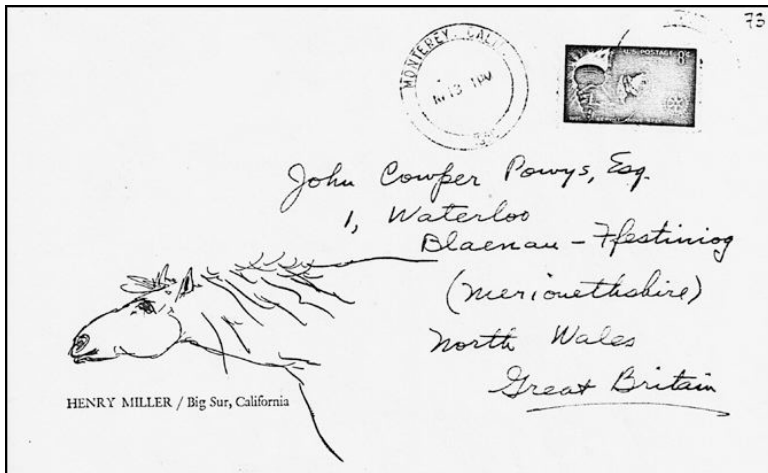 73
MONTEREY, CALIF.
U.S. POSTAGE 8¢
John Cowper Powys, Esq.
1, Waterloo
Blaenau - Ffestiniog
(Merionethshire)
North Wales
Great Britain
HENRY MILLER / Big Sur, California